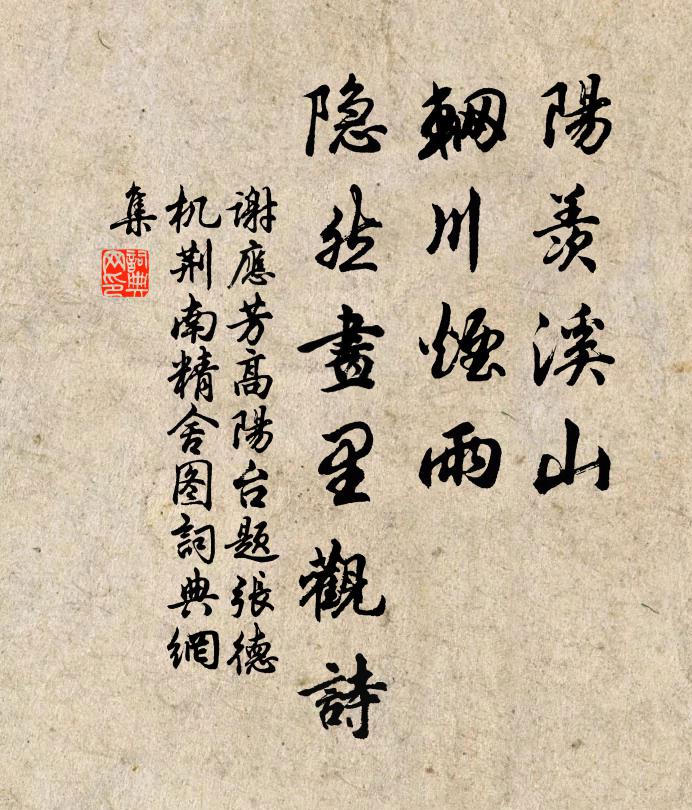 陽羨溪山
輞川煙雨
隐然畫里觀詩
谢應芳高陽台题張德
机荆南精舍图詞典網
集
詞典
网印